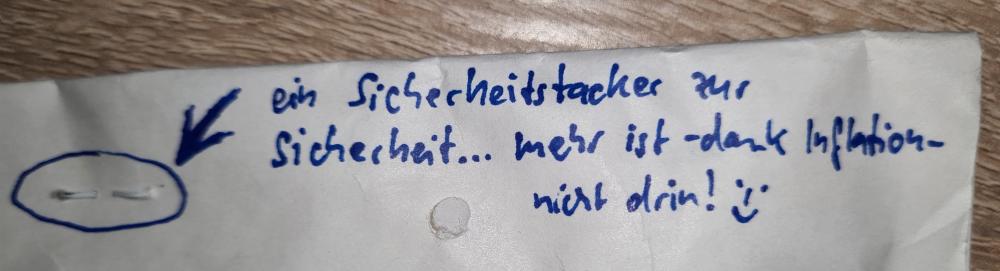 ein Sicherheitstacker zur
Sicherheit... mehr ist -dank Inflation-
nicht drin! :)